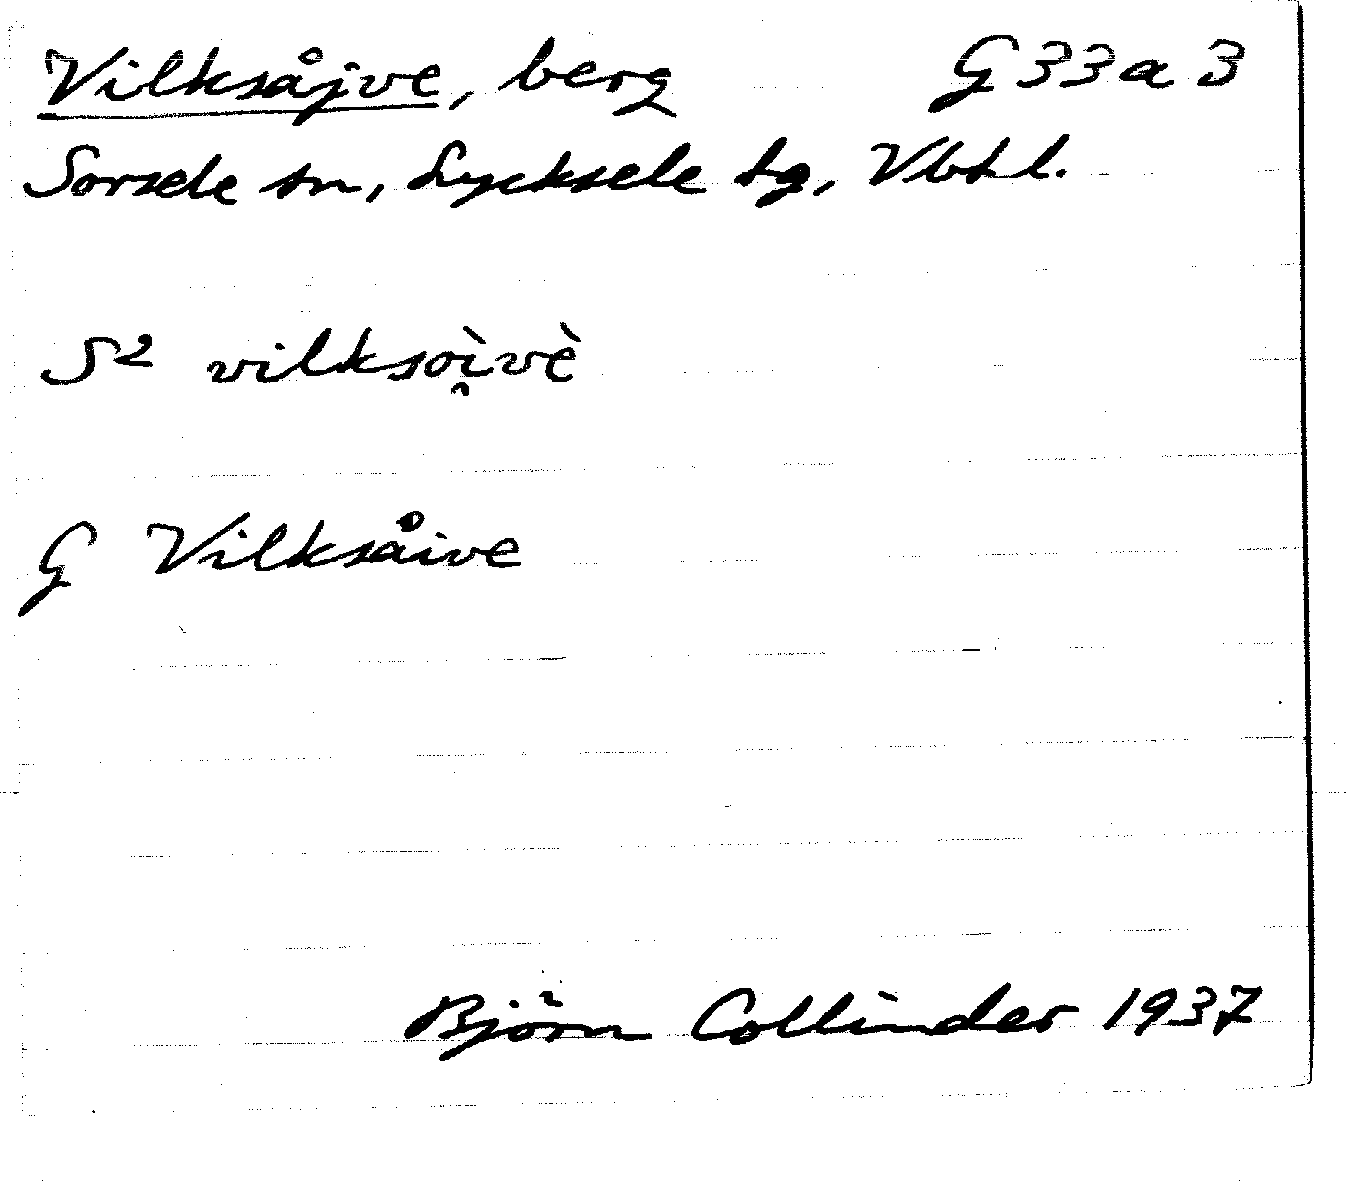 Vilksåjve, berg G 33 a 3
Sorsele sn, Lycksele lg, Vbtl.
S² vilksoi̯vè
G Vilksåive
Björn Collinder 1937